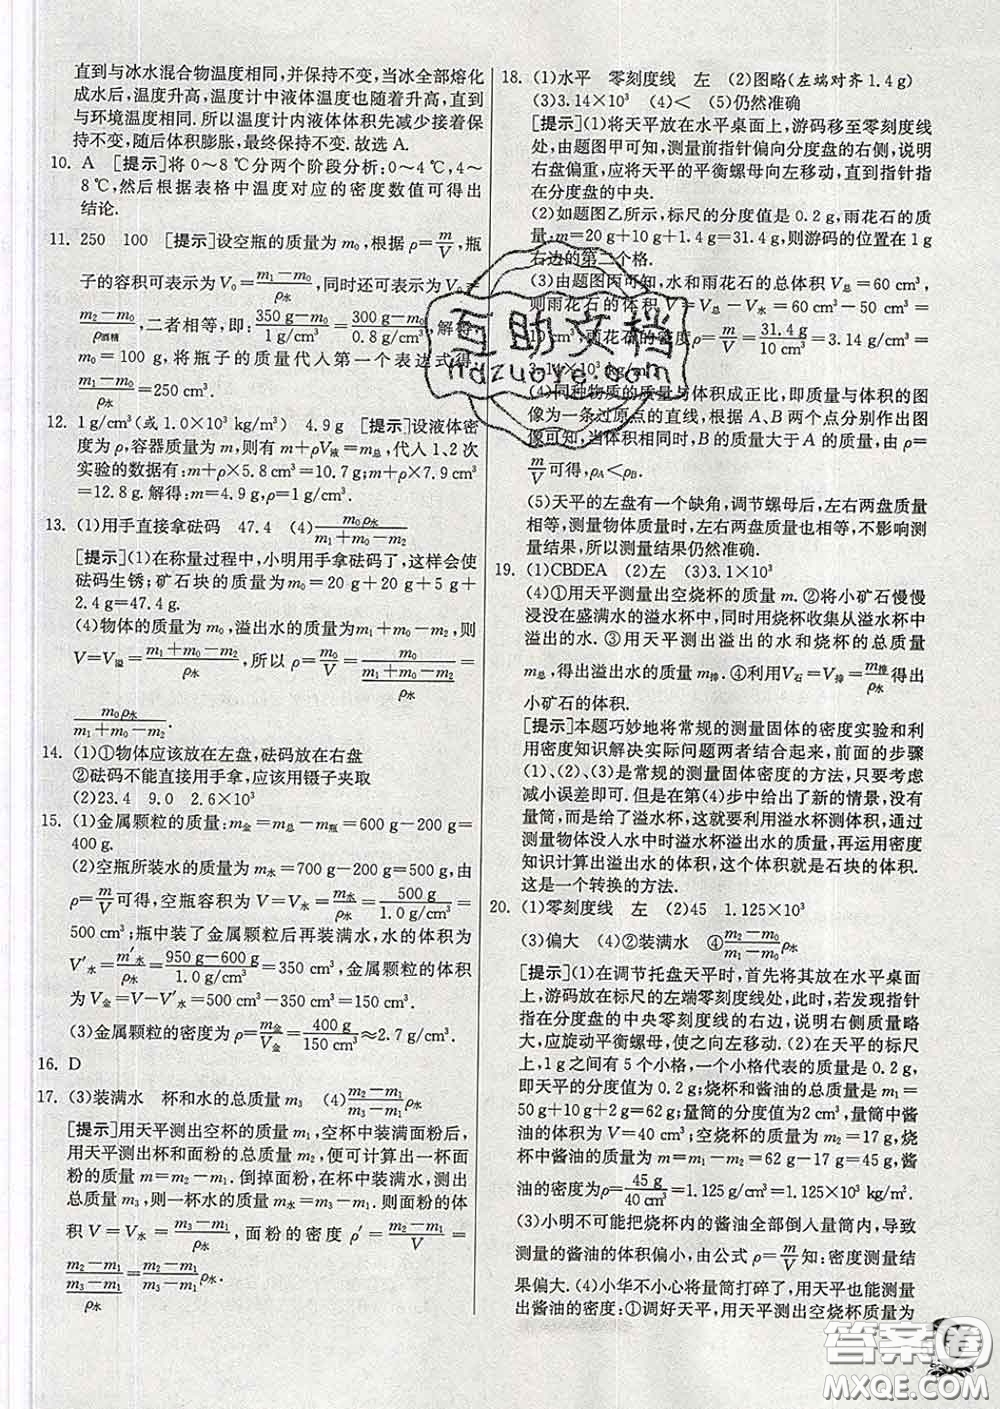 直到与冰水混合物温度相同,并保持不变,当冰全部熔化
成水后,温度升高,温度计中液体温度也随着升高,直到
与环境温度相同.所以温度计内液体体积先减少接着保
持不变,随后体积膨胀,最终保持不变.故选A.
10. A [提示]将0～8℃分两个阶段分析:0～4℃,4～
8℃,然后根据表格中温度对应的密度数值可得出
结论.
11. 250 100 [提示]设空瓶的质量为m₀,根据ρ=m/V,瓶
子的容积可表示为V₀=(m₁−m₀)/ρ水,同时还可表示为V₀=
(m₂−m₀)/ρ酒精,二者相等,即:(350 g−m₀)/(1 g/cm³)=(300 g−m₀)/(0.8 g/cm³),解得
m₀=100 g,将瓶子的质量代入第一个表达式得,
(m₁−m₀)/ρ水=250 cm³.
12. 1 g/cm³(或1.0×10³ kg/m³) 4.9 g [提示]设液体密
度为ρ,容器质量为m,则有m+ρV液=m总,代入1、2次
实验的数据有:m+ρ×5.8 cm³=10.7 g;m+ρ×7.9 cm³
=12.8 g.解得:m=4.9 g,ρ=1 g/cm³.
13. (1)用手直接拿砝码 47.4 (4)m₀ρ水/(m₁+m₀−m₂)
[提示](1)在称量过程中,小明用手拿砝码了,这样会使
砝码生锈;矿石块的质量为m₀=20 g+20 g+5 g+
2.4 g=47.4 g.
(4)物体的质量为m₀,溢出水的质量为m₁+m₀−m₂,则
V=V溢=(m₁+m₀−m₂)/ρ水,所以ρ=m/V=m₀/((m₁+m₀−m₂)/ρ水)=
m₀ρ水/(m₁+m₀−m₂).
14. (1)①物体应该放在左盘,砝码放在右盘
②砝码不能直接用手拿,应该用镊子夹取
(2)23.4 9.0 2.6×10³
15. (1)金属颗粒的质量:m金=m总−m瓶=600 g−200 g=
400 g.
(2)空瓶所装水的质量为m水=700 g−200 g=500 g,由
ρ=m/V可得,空瓶容积为V=V水=m水/ρ水=500 g/(1.0 g/cm³)=
500 cm³;瓶中装了金属颗粒后再装满水,水的体积为
V′水=m′水/ρ水=(950 g−600 g)/(1.0 g/cm³)=350 cm³,金属颗粒的体积
为V金=V−V′水=500 cm³−350 cm³=150 cm³.
(3)金属颗粒的密度为ρ=m金/V金=400 g/150 cm³≈2.7 g/cm³.
16. D
17. (3)装满水 杯和水的总质量m₃ (4)(m₂−m₁)/(m₃−m₁)ρ水
[提示]用天平测出空杯的质量m₁,空杯中装满面粉后,
用天平测出杯和面粉的总质量m₂,便可计算出一杯面
粉的质量m=m₂−m₁.倒掉面粉,在杯中装满水,测出
总质量m₃,则一杯水的质量m水=m₃−m₁.则面粉的体
积V=V水=(m₃−m₁)/ρ水,面粉的密度ρ′=(m₂−m₁)/V=
(m₂−m₁)/((m₃−m₁)/ρ水)=(m₂−m₁)/(m₃−m₁)ρ水.
18. (1)水平 零刻度线 左 (2)图略(左端对齐1.4 g)
(3)3.14×10³ (4)< (5)仍然准确
[提示](1)将天平放在水平桌面上,游码移至零刻度线
处,由题图甲可知,测量前指针偏向分度盘的右侧,说明
右盘偏重,应将天平的平衡螺母向左移动,直到指针指
在分度盘的中央.
(2)如题图乙所示,标尺的分度值是0.2 g,雨花石的质
量:m=20 g+10 g+1.4 g=31.4 g,则游码的位置在1 g
右边的第二个格.
(3)由题图丙可知,水和雨花石的总体积V总=60 cm³,
则雨花石的体积V=V总−V水=60 cm³−50 cm³=
10 cm³,雨花石的密度ρ=m/V=31.4 g/10 cm³=3.14 g/cm³=
3.14×10³ kg/m³.
(4)同种物质的质量与体积成正比,即质量与体积的图
像为一条过原点的直线,根据A、B两个点分别作出图
像可知,当体积相同时,B的质量大于A的质量,由ρ=
m/V可得,ρA<ρB.
(5)天平的左盘有一个缺角,调节螺母后,左右两盘质量
相等,测量物体质量时,左右两盘质量也相等,不影响测
量结果,所以测量结果仍然准确.
19. (1)CBDEA (2)左 (3)3.1×10³
(4)①用天平测量出空烧杯的质量m.②将小矿石慢慢
浸没在盛满水的溢水杯中,同时用烧杯收集从溢水杯中
溢出的水.③用天平测出溢出的水和烧杯的总质量
m总,得出溢出水的质量m排.④利用V石=V排=m排/ρ水得出
小矿石的体积.
[提示]本题巧妙地将常规的测量固体的密度实验和利
用密度知识解决实际问题两者结合起来,前面的步骤
(1)、(2)、(3)是常规的测量固体密度的方法,只要考虑
减小误差即可.但是在第(4)步中给出了新的情景,没有
量筒,而是给了溢水杯,这就要利用溢水杯测体积,通过
测量物体没入水中时溢水杯溢出水的质量,再运用密度
知识计算出溢出水的体积,这个体积就是石块的体积.
这是一个转换的方法.
20. (1)零刻度线 左 (2)45 1.125×10³
(3)偏大 (4)②装满水 ④(m₂−m₀)/(m₁−m₀)ρ水
[提示](1)在调节托盘天平时,首先将其放在水平桌面
上,游码放在标尺的左端零刻度线处,此时,若发现指针
指在分度盘的中央零刻度线的右边,说明右侧质量略
大,应旋动平衡螺母,使之向左移动.(2)在天平的标尺
上,1 g之间有5个小格,一个小格代表的质量是0.2 g,
即天平的分度值为0.2 g;烧杯和酱油的总质量m₁=
50 g+10 g+2 g=62 g;量筒的分度值为2 cm³,量筒中酱
油的体积为V=40 cm³;空烧杯的质量为m₂=17 g,烧
杯中酱油的质量为m=m₁−m₂=62 g−17 g=45 g,酱
油的密度为ρ=45 g/40 cm³=1.125 g/cm³=1.125×10³ kg/m³.
(3)小明不可能把烧杯内的酱油全部倒入量筒内,导致
测量的酱油的体积偏小,由公式ρ=m/V知:密度测量结
果偏大.(4)小华不小心将量筒打碎了,用天平也能测量
出酱油的密度:①调好天平,用天平测出空烧杯质量为
互助文档
hdzuowe.com
答案圈
MXQE.COM